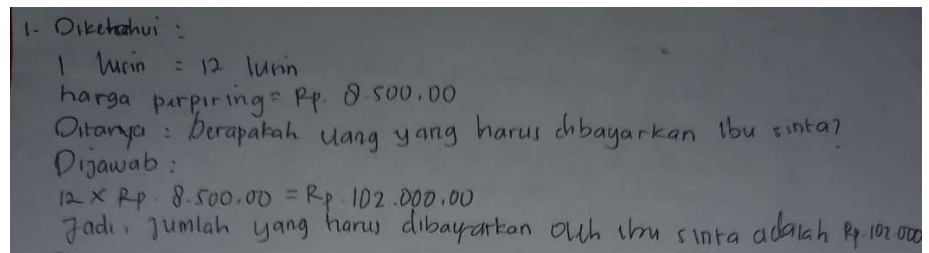 1. Diketahui :
1 lusin = 12 lusin
harga perpiring = Rp. 8.500.00
Ditanya : berapakah uang yang harus dibayarkan Ibu sinta?
Dijawab :
12 X Rp. 8.500.00 = Rp. 102.000.00
Jadi, Jumlah yang harus dibayarkan oleh ibu sinta adalah Rp. 102 000